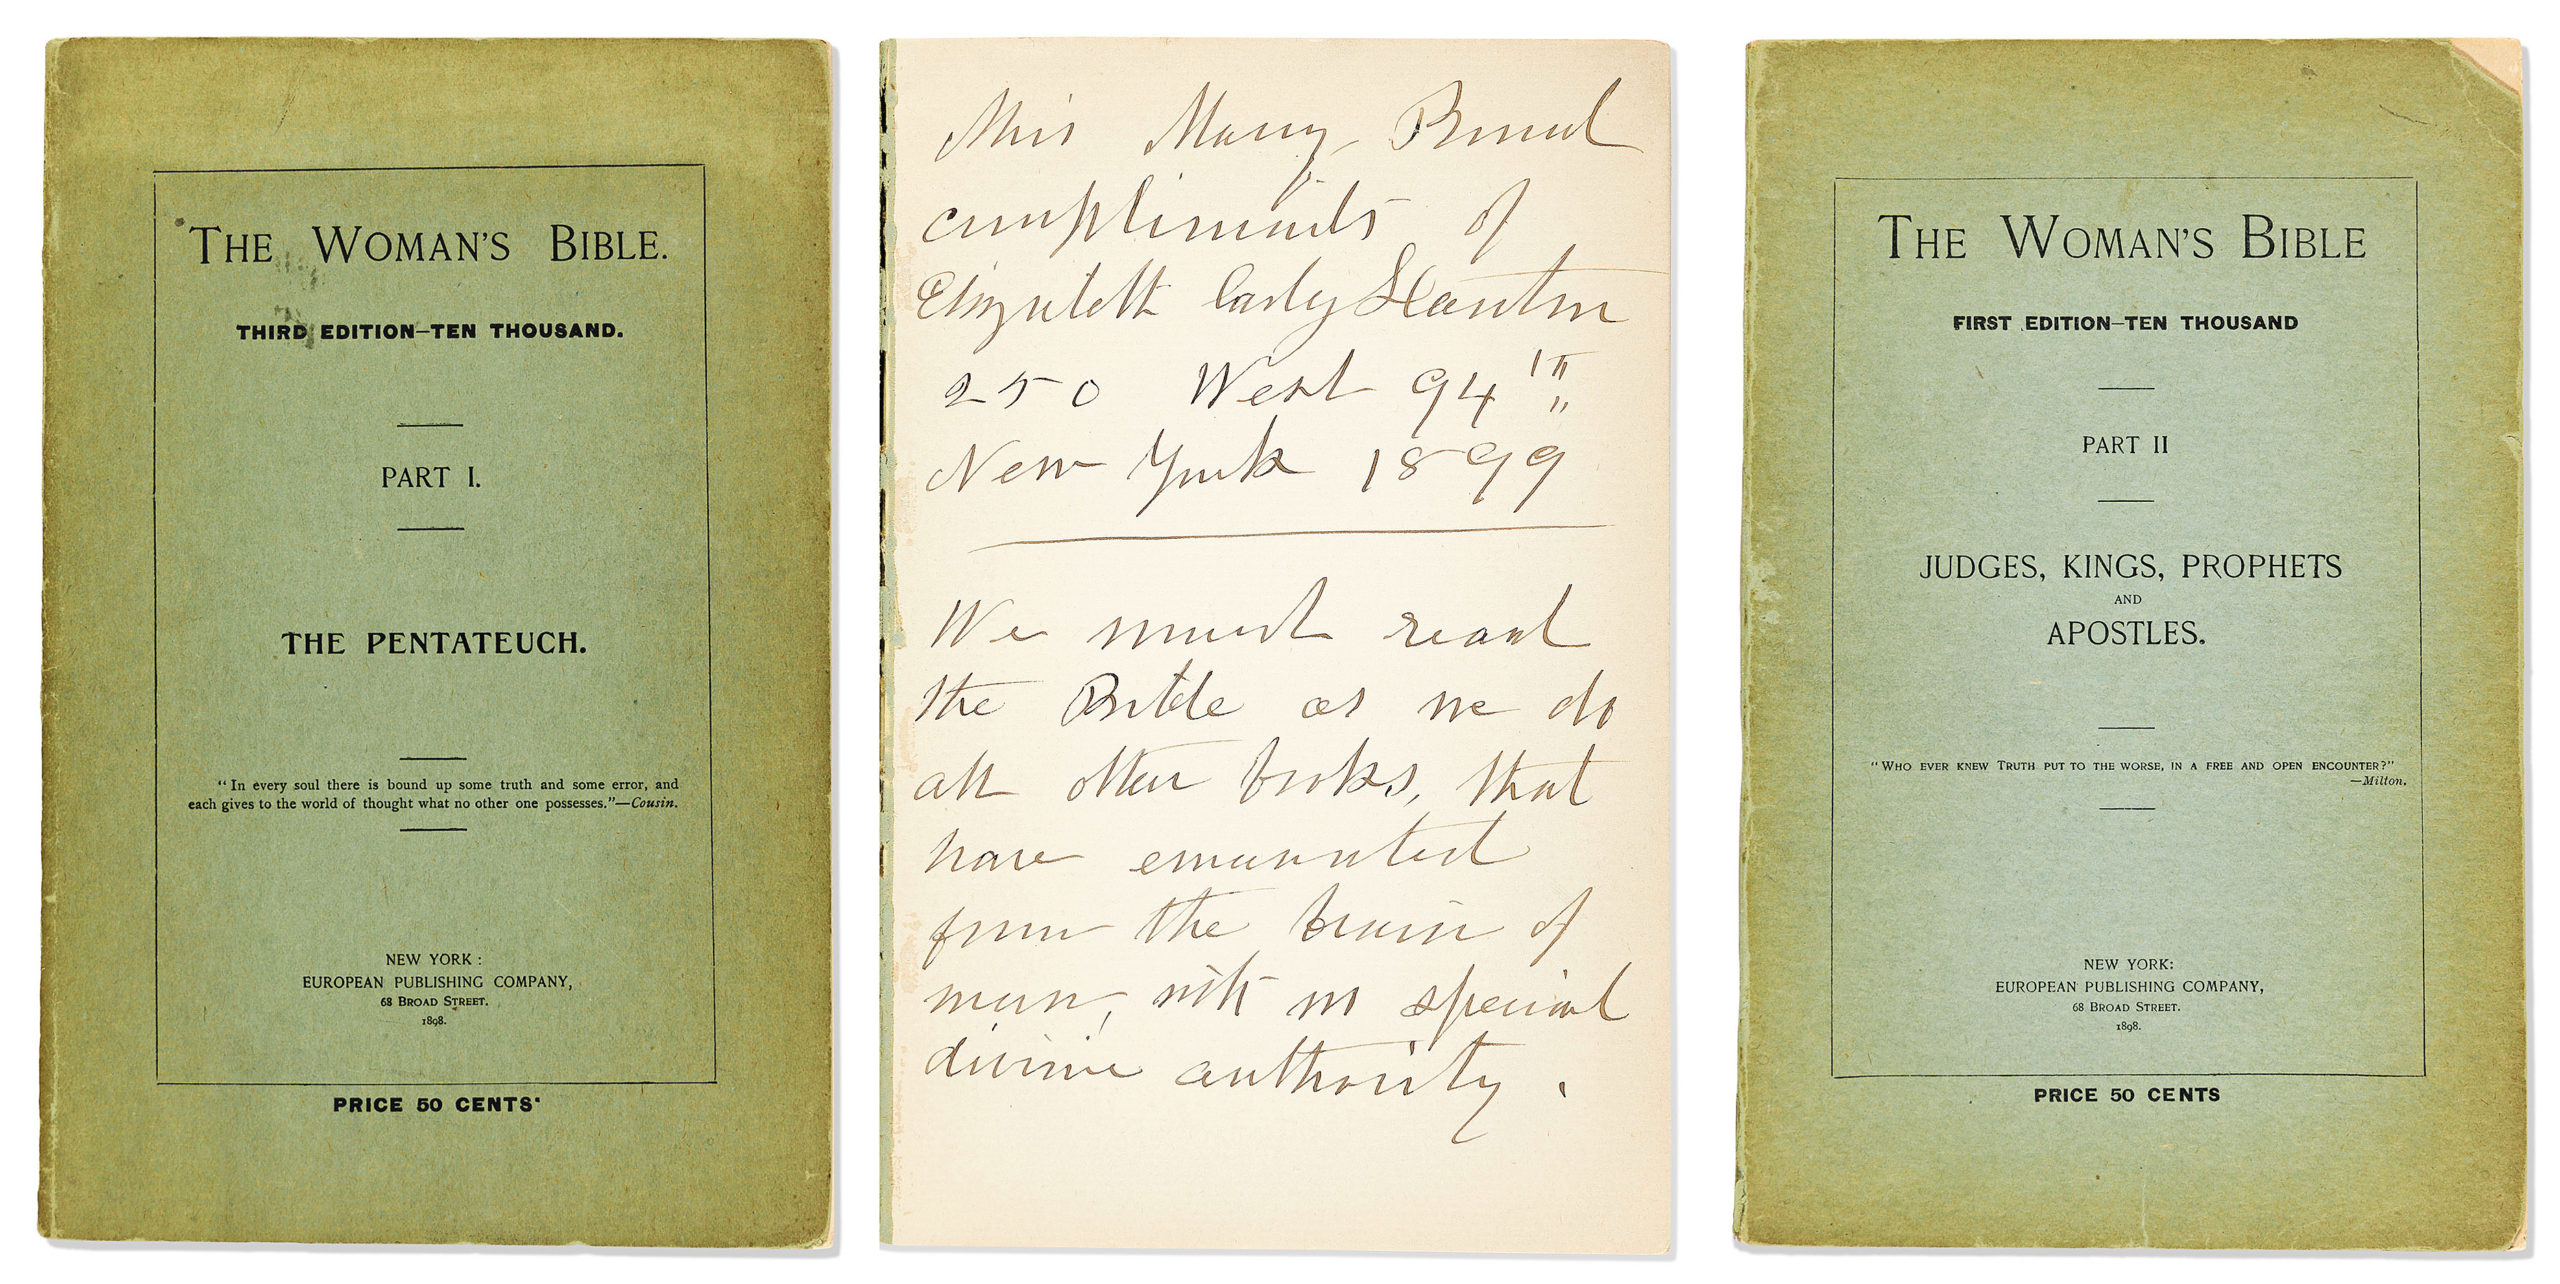 THE WOMAN'S BIBLE.
THIRD EDITION—TEN THOUSAND.
PART I.
THE PENTATEUCH.
“In every soul there is bound up some truth and some error, and
each gives to the world of thought what no other one possesses.”—Cousin.
NEW YORK:
EUROPEAN PUBLISHING COMPANY,
68 BROAD STREET.
1898.
PRICE 50 CENTS.
Miss Mary
compliments of
Elizabeth Cady Stanton
250 West 94th
New York 1899
We must read
the Bible as we do
all other books, that
have emanated
from the brain of
man, with no special
divine authority.
THE WOMAN'S BIBLE
FIRST EDITION—TEN THOUSAND
PART II
JUDGES, KINGS, PROPHETS
AND
APOSTLES.
“WHO EVER KNEW TRUTH PUT TO THE WORSE, IN A FREE AND OPEN ENCOUNTER?”
—Milton.
NEW YORK:
EUROPEAN PUBLISHING COMPANY,
68 BROAD STREET.
1898.
PRICE 50 CENTS